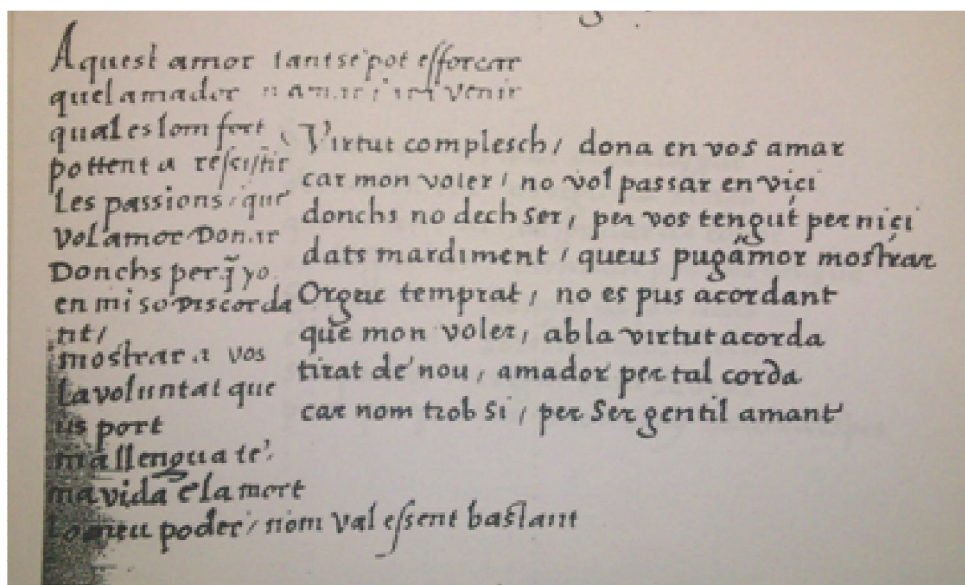 Aquest amor tantse pot efforcar
quel amador venir
qual es lom fort
pottent a resistir
Les passions / que
Vol amor Donar
Donchs per q̃ yo
en mi so Discorda
nt /
mostrar a vos
La voluntat que
us port
ma llengua te'
ma vida e la mort
Lo meu poder / nom val essent bastant
Virtut complesch / dona en vos amar
car mon voler / no vol passar en viçi
donchs no dech ser / per vos tengut per niçi
dats mardiment / queus pugãmor mostrar
Orgue temprat / no es pus acordant
que mon voler / abla virtut acorda
tirat de nou / amador per tal corda
car nom trob si / per ser gentil amant